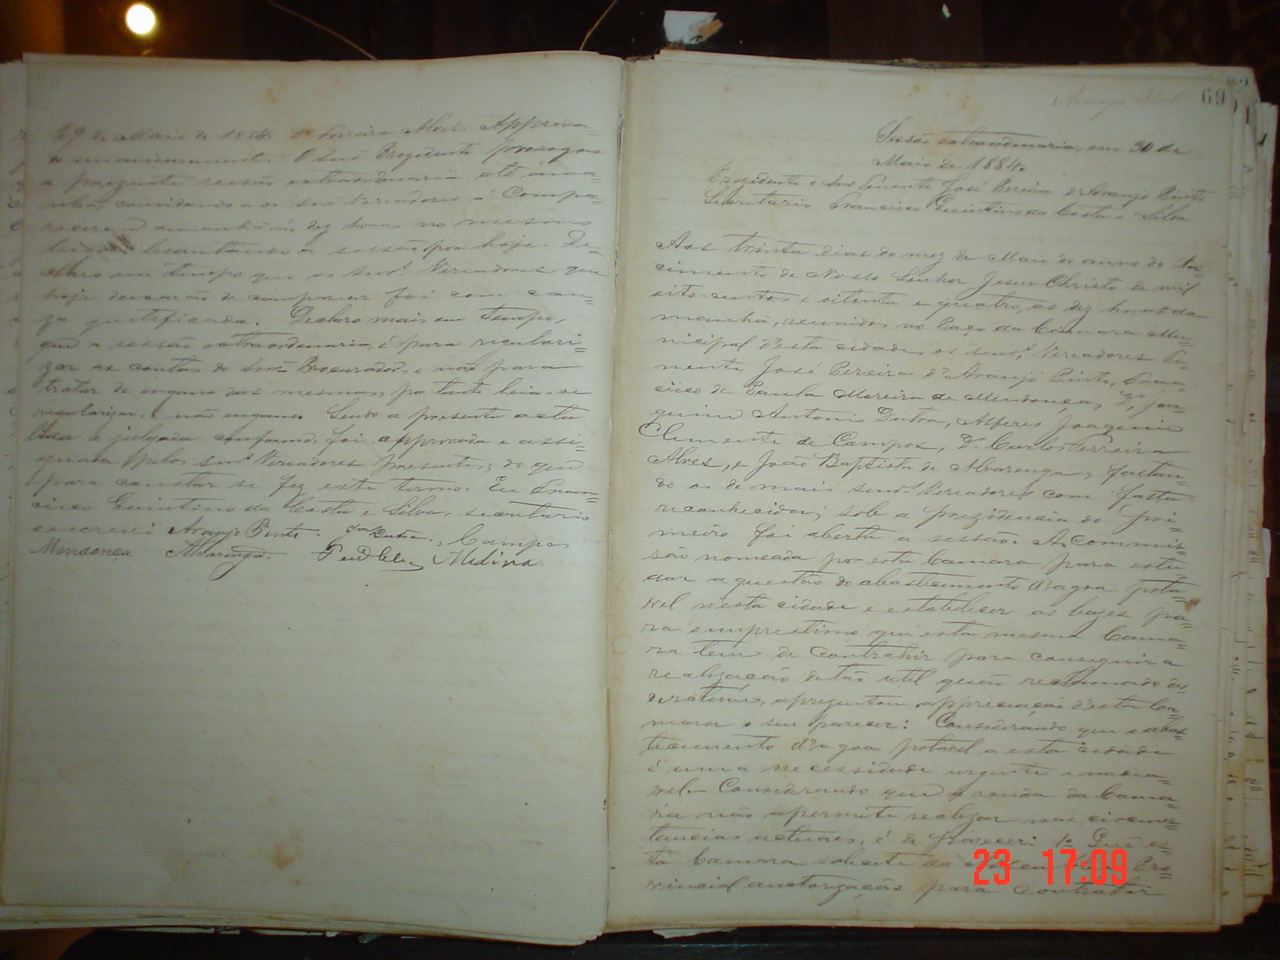 29 de Maio de 1884. Dr Ferreira Alves. Approva-
do unanimemente. O Snr Prezidente prorogou
a prezente sessão extraordinaria até ama-
nhã, convidando a os Snrs Vereadores á Compa-
recerem amanhã ás dez horas no mesmo
lugar, levantando a sessão por hoje. De-
claro em tempo que os Snrs Vereadores que
hoje deixarão de comparecer foi com cau-
za justificada. Declaro mais em tempo,
que a sessão extraordinaria, é para regulari-
zar as contas do Snr Procurador, e não para
tratar de engano das mesmas, portanto leia-se
regularizar, e não engano. Lendo a presente acta
lida e julgada conforme, foi approvada e assi-
gnada pelos Snrs Vereadores presentes; do que
para constar se fez este termo. Eu Fran-
cisco Quintino da Costa e Silva, secretario
escrevi Araujo Pinto. Dutra, Campos
Mendonça Alvarenga. Medina
Araujo Pinto 69
Sessão extraordinaria, em 30 de
Maio de 1884.
Prezidente o Snr Tenente José Pereira d'Araujo Pinto
Secretario Francisco Quintino da Costa e Silva
Aos trinta dias do mez de Maio do anno do Nas-
cimento de Nosso Senhor Jesus Christo de mil
oito centos e oitenta e quatro, as dez horas da
manhã, reunidos no Paço da Camara Mu-
nicipal d'esta cidade, os Snrs Vereadores Te-
nente José Pereira d'Araujo Pinto, Fran-
cisco de Paula Moreira de Mendonça, Joa-
quim Antonio Dutra, Alferes Joaquim
Clemente de Campos, Dr Carlos Ferreira
Alves, e João Baptista de Alvarenga, faltan-
do os de mais Snrs Vereadores com falta
reconhecida; sob a prezidencia do pri-
meiro foi aberta a sessão. A Commis-
são nomeada por esta Camara para estu-
dar a questão do abastecimento d'agoa pota-
vel nesta cidade e estabelecer as bazes pa-
ra o emprestimo que esta mesma Cama-
ra tem de contrahir para conseguir a
realização de tão util quão reclamado de-
sideratum, apresentou a appreciação d'esta Ca-
mara o seu parecer: Considerando que o abas-
tecimento d'agoa potavel a esta cidade
é uma necessidade urgente e inadia-
vel. - Considerando que a renda da Cama-
ra não a permitte realizar nas circums-
tancias actuaes, é de parecer: 1º Que es-
ta Camara solicite da Assembléa Pro-
vincial auctorização para contratar
23 17:09